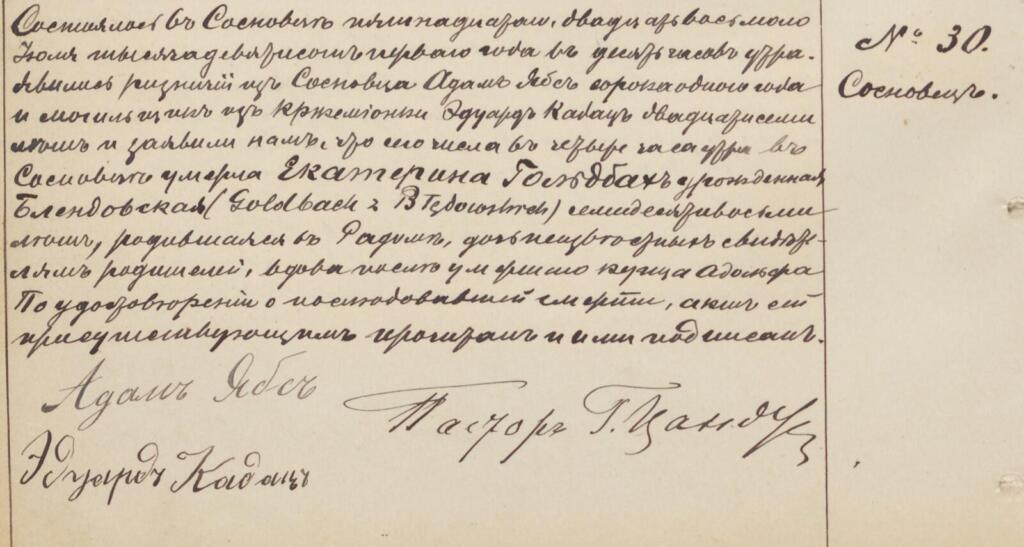 Состоялось въ Сосновцѣ пятнадцатаго, двадцать восьмого
Іюля тысяча девятисотъ перваго года въ десять часовъ утра.
Явились ризничій изъ Сосновца Адамъ Ябсъ сорока одного года
и могильщикъ изъ Кржеміонки Эдуардъ Кабацъ двадцати семи
лѣтъ и заявили намъ, что сего числа въ четыре часа утра въ
Сосновцѣ умерла Екатерина Гольдбахъ урожденная
Блендовская (Goldbach z Błędowskich) семидесяти восьми
лѣтъ, родившаяся въ Радомѣ, дочь неизвѣстныхъ свидѣте-
лямъ родителей, вдова послѣ умершаго купца Адольфа
По удостовѣреніи о послѣдовавшей смерти, актъ сей
присутствующимъ прочитанъ и ими подписанъ.
Адамъ Ябсъ
Пасторъ Г. Цандеръ
Эдуардъ Кабацъ
№ 30.
Сосновецъ.